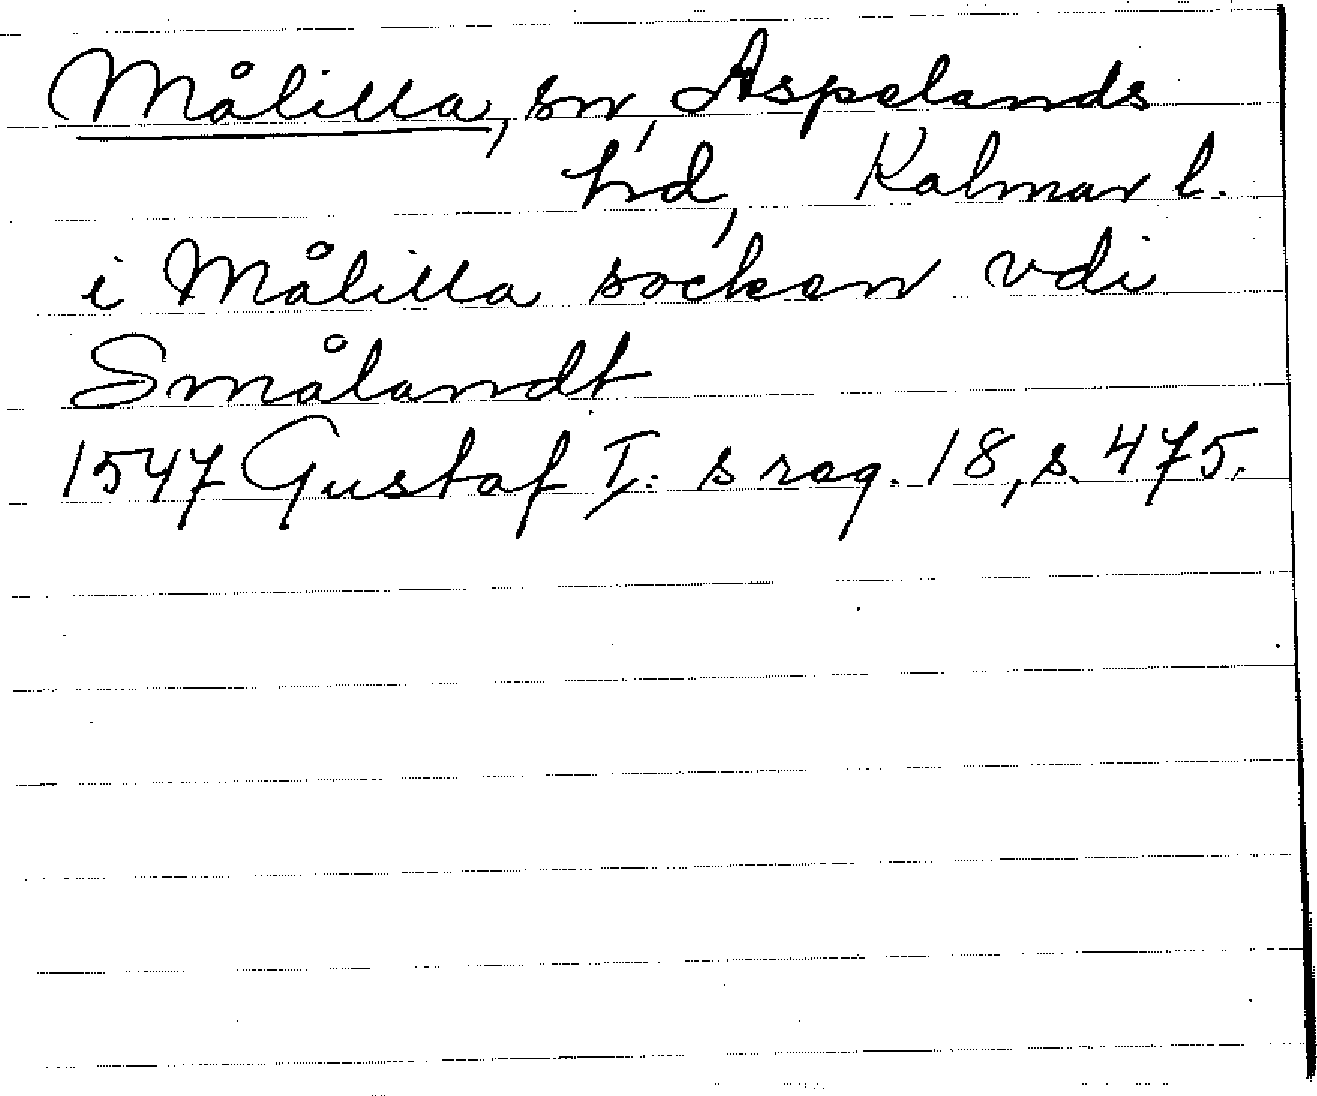 Målilla, sn, Aspelands
hd, Kalmar l.
i Målilla socken vdi
Smålandt
1547 Gustaf I: s reg. 18, s. 475.